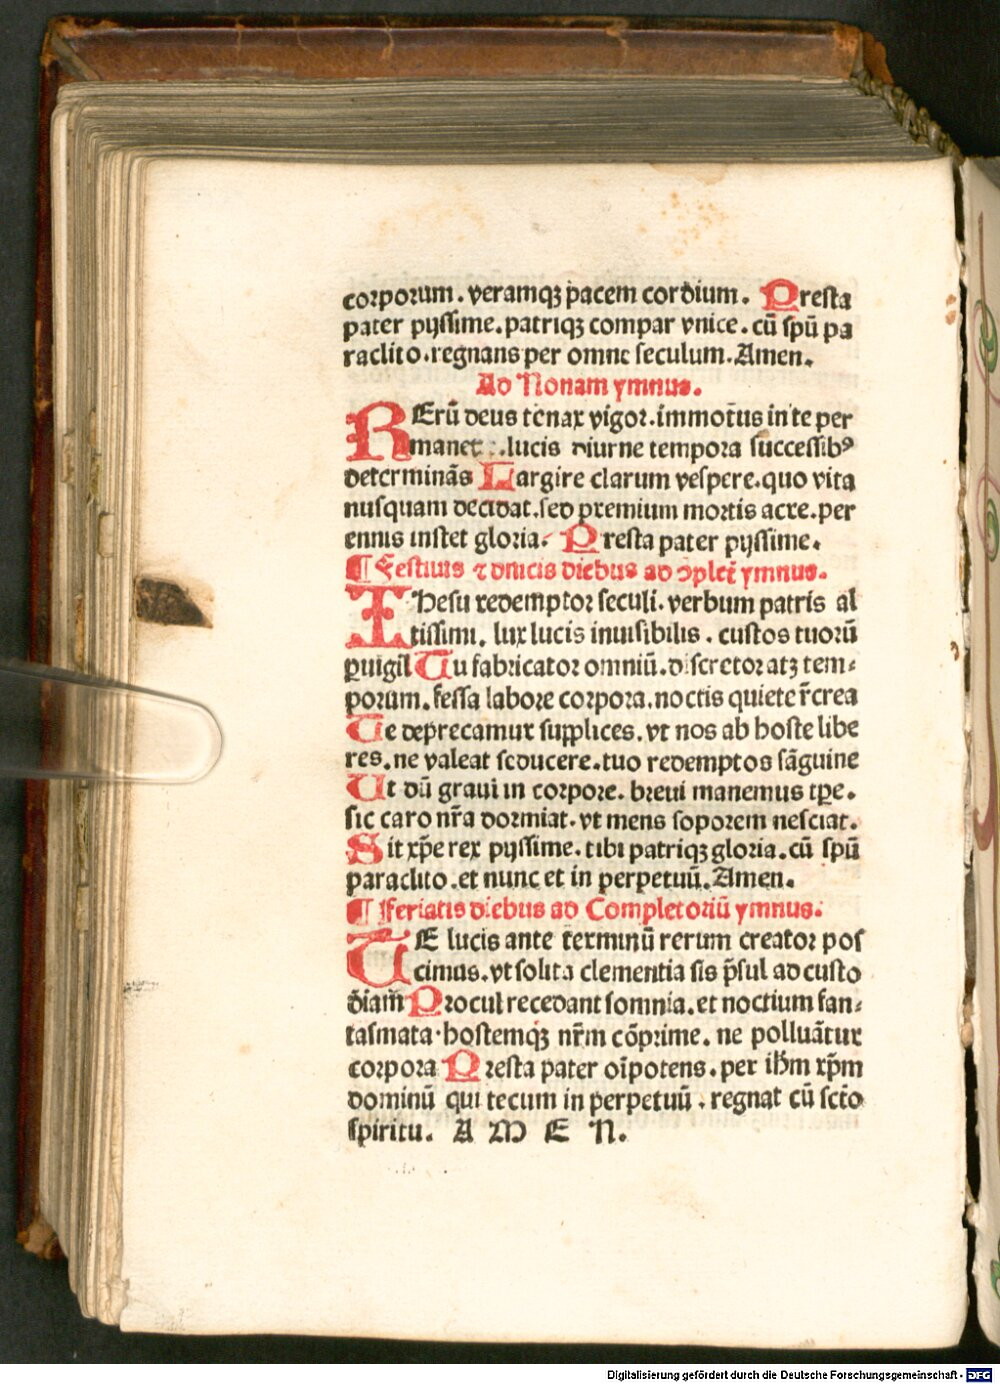 corporum. veramqꝫ pacem cordium. Presta
pater pijssime. patriqꝫ compar vnice. cū spū pa
raclito. regnans per omne seculum. Amen.
Ad Nonam ymnus.
RErū deus tenax vigor. immotus in te per
manet lucis diurne tempora successibꝰ
determinās Largire clarum vespere. quo vita
nusquam decidat. sed premium mortis acre. per
ennis instet gloria. Presta pater pijssime.
¶ Festiuis ⁊ dnicis diebus ad ↄplet̄ ymnus.
IHesu redemptor seculi. verbum patris al
tissimi. lux lucis inuisibilis. custos tuorū
ꝑuigil Tu fabricator omniū. discretor atꝫ tem⸗
porum. fessa labore corpora. noctis quiete r̄crea
Te deprecamur supplices. vt nos ab hoste libe
res. ne valeat seducere. tuo redemptos sāguine
Ut dū graui in corpore. breui manemus tp̄e.
sic caro nr̄a dormiat. vt mens soporem nesciat.
Sit xp̄e rex pijssime. tibi patriqꝫ gloria. cū spū
paraclito. et nunc et in perpetuū. Amen.
¶ Feriatis diebus ad Completoriū ymnus.
TE lucis ante terminū rerum creator pos
cimus. vt solita clementia sis p̄sul ad custo
diam̄ Procul recedant somnia. et noctium fan⸗
tasmata. hostemqꝫ nr̄m cōprime. ne polluātur
corpora Presta pater oīpotens. per ihm̄ xp̄m
dominū qui tecum in perpetuū. regnat cū sctō
spiritu. A M E N.
Digitalisierung gefördert durch die Deutsche Forschungsgemeinschaft - DFG